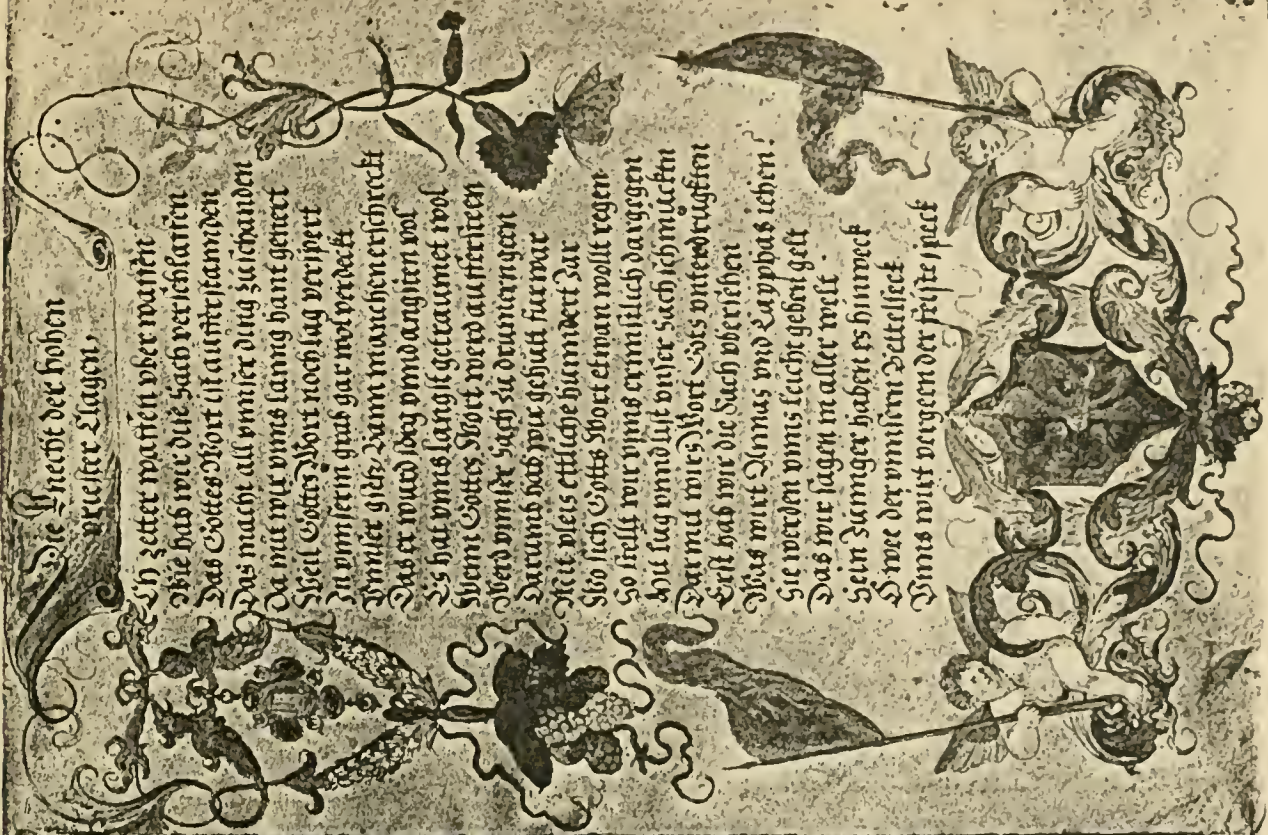 Die Knecht der hohen
priester Clagen,
Ch zetter waffen vber waffen
Wie hab wir die Sach verschlaffen
Das Gottes Wort ist aufferstanden
Das macht all vnnser ding zuschanden
Da mit wir vnns lanng hant genert
Weil Gottes Wort noch lag verspert
In vnnserm grab gar wol verdeckt
Vnnser gsetz Bann manchen erschreckt
Das er wurd bey vnnd angsten vol
Es hat vnns langst getraumet wol
Wenn Gottes Wort werd auffersteen
Werd vnnser Sach zu drumern geen
Darumb hab wir gehütt fürwar
Mit vleis ettliche hünndert Jar
Wo sich Gotts Wort etwan wollt regen
So stellt wir vnns ernnstlich dargegen
Mit lug vnnd list vnser Sach schmuckten
Darmit wirs Wort Gots vnterdrügkten
Erst hab wir die Sach vbersehen
Was wirt Annas vnd Cayphas iehen?
Sie werden vnns leicht geben gelt
Das wir sagen in aller welt
Sein Junnger haben es hinweck
O wee der vnnsern Bettelseck
Vnns wirt vergenn der feiste speck